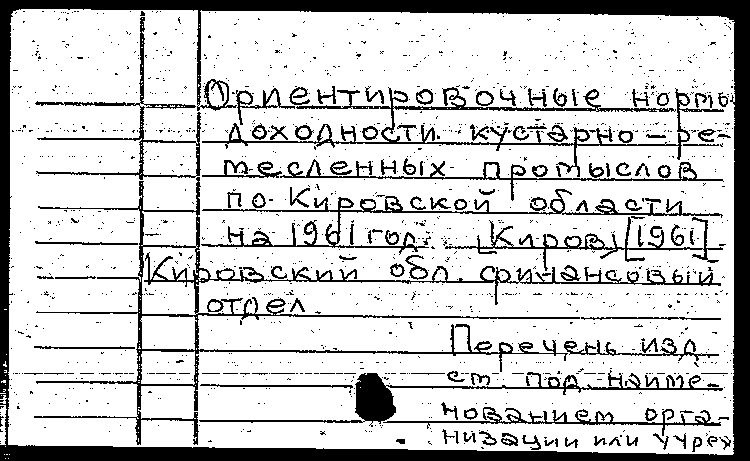 Ориентировочные нормы
доходности кустарно-ре-
месленных промыслов
по Кировской области
на 1961 год. [Киров] [1961]
Кировский обл. финансовый
отдел.
Перечень изд
см. под наиме-
нованием орга-
низации или учреж